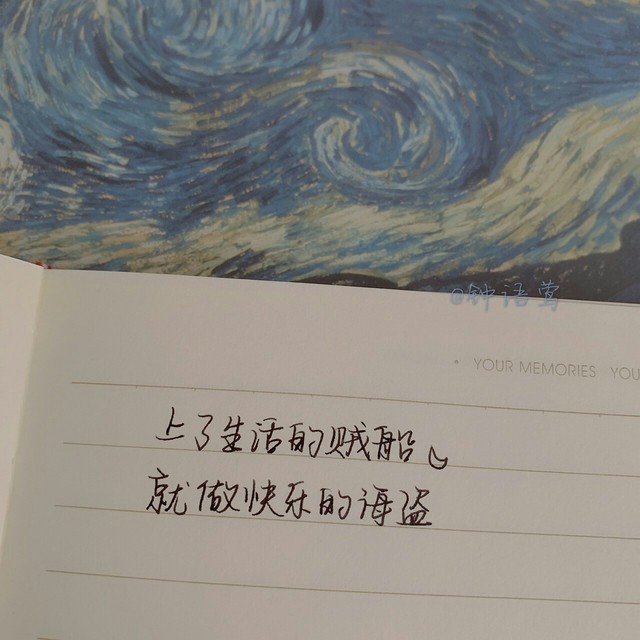 @钟语莺
• YOUR MEMORIES YOU
上了生活的贼船。
就做快乐的海盗